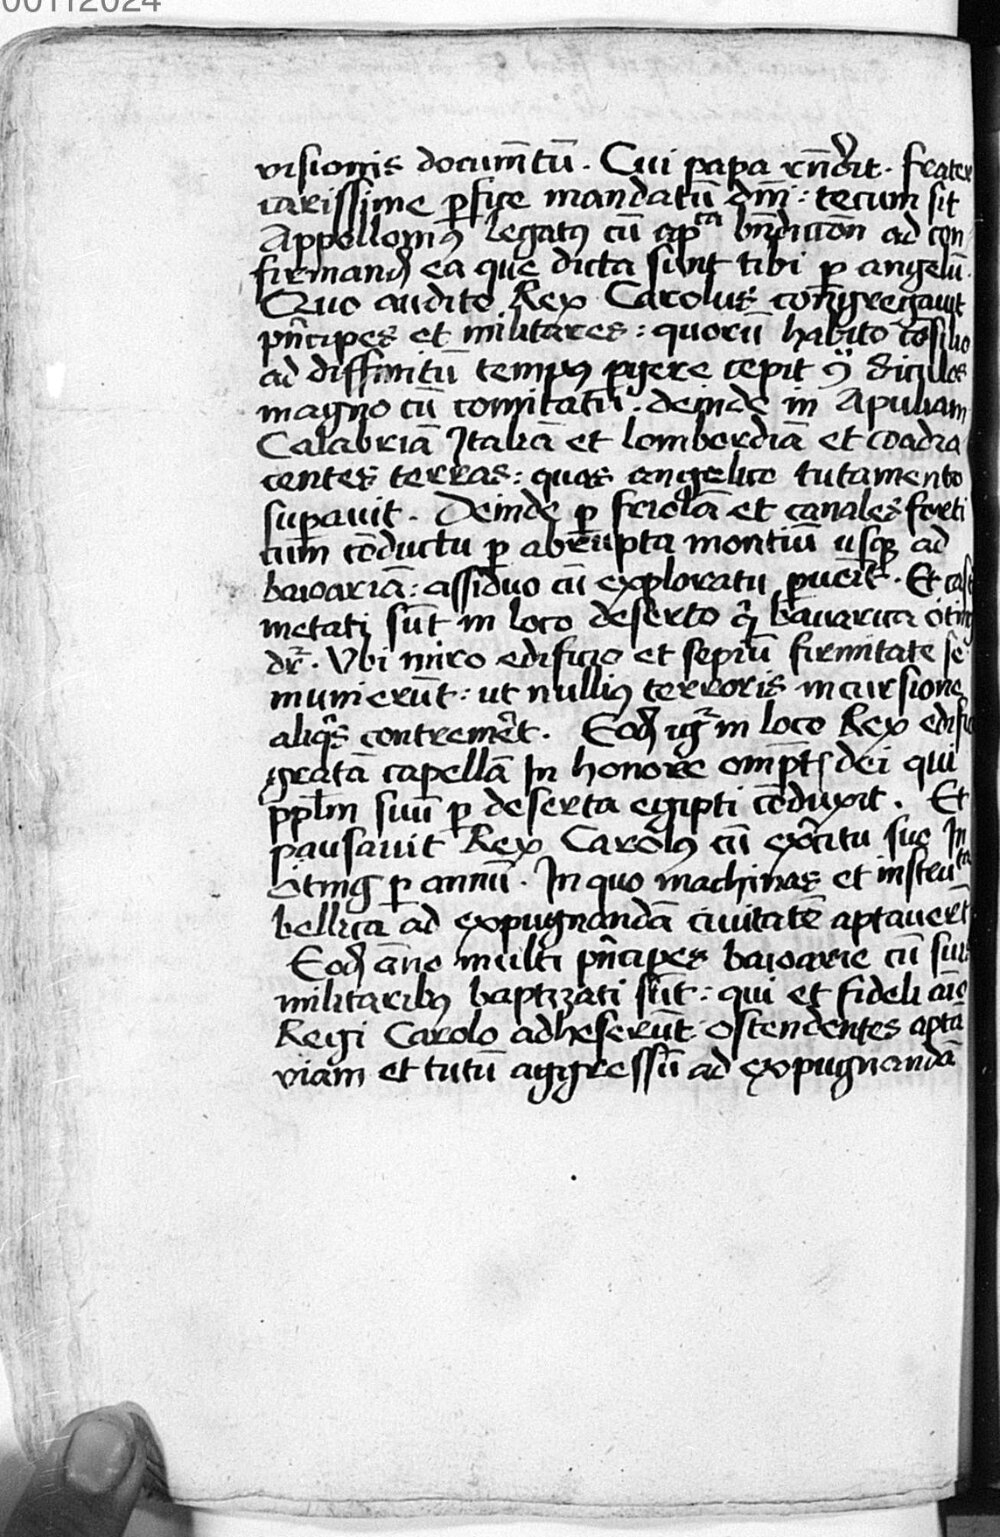 00112024
visionis documētū. Cui papa rn̄dit. frater
carissime ꝑfice mandatū dm̄: tecum sit
Appollonīꝰ legatꝰ cū ap̄ca bn̄diccōn ad con
firmand ea que dicta sunt tibi ꝑ angelū.
Quo audito Rex Carolus congregauit
pn̄cipes et militares: quorū habito cōsilio
ad diffinitū tempꝰ ꝑgere cepit siculos
magno cū comitatu: deinde in Apuliam
Calabriā Italiā et lomberdiā et coadia
centes terras: quas angelico tutamento
suꝑauit. Deinde ꝑ friolā et canales forti
cum cōductu ꝑ abrupta montiū usqꝫ ad
baioariā: assiduo cū exploratu ꝑuēit. Et cast
metati sūt in loco deserto bauarica
dr̄. Vbi miro edificio et sepiū firmitate sē
munierūt: ut nulliꝰ terroris incursione
aliqs contremēt. Eod igr̄ in loco Rex edifi
gratā capellā In honore ompt dei qui
pplm̄ suū ꝑ deserta egipti cōduxit. Et
pausauit Rex Carolꝰ cū exēcitu suo In
ōting ꝑ annū. In quo machinas et instru
bellica ad expugnandā ciuitatē aptauerūt
Eod āno multi pn̄cipes baioarie cū suis
militaribꝰ baptizati sūt: qui et fideli aīo
Regi Carolo adheserūt: ostendentes apta
viam et tutū aggressū ad expugnandā